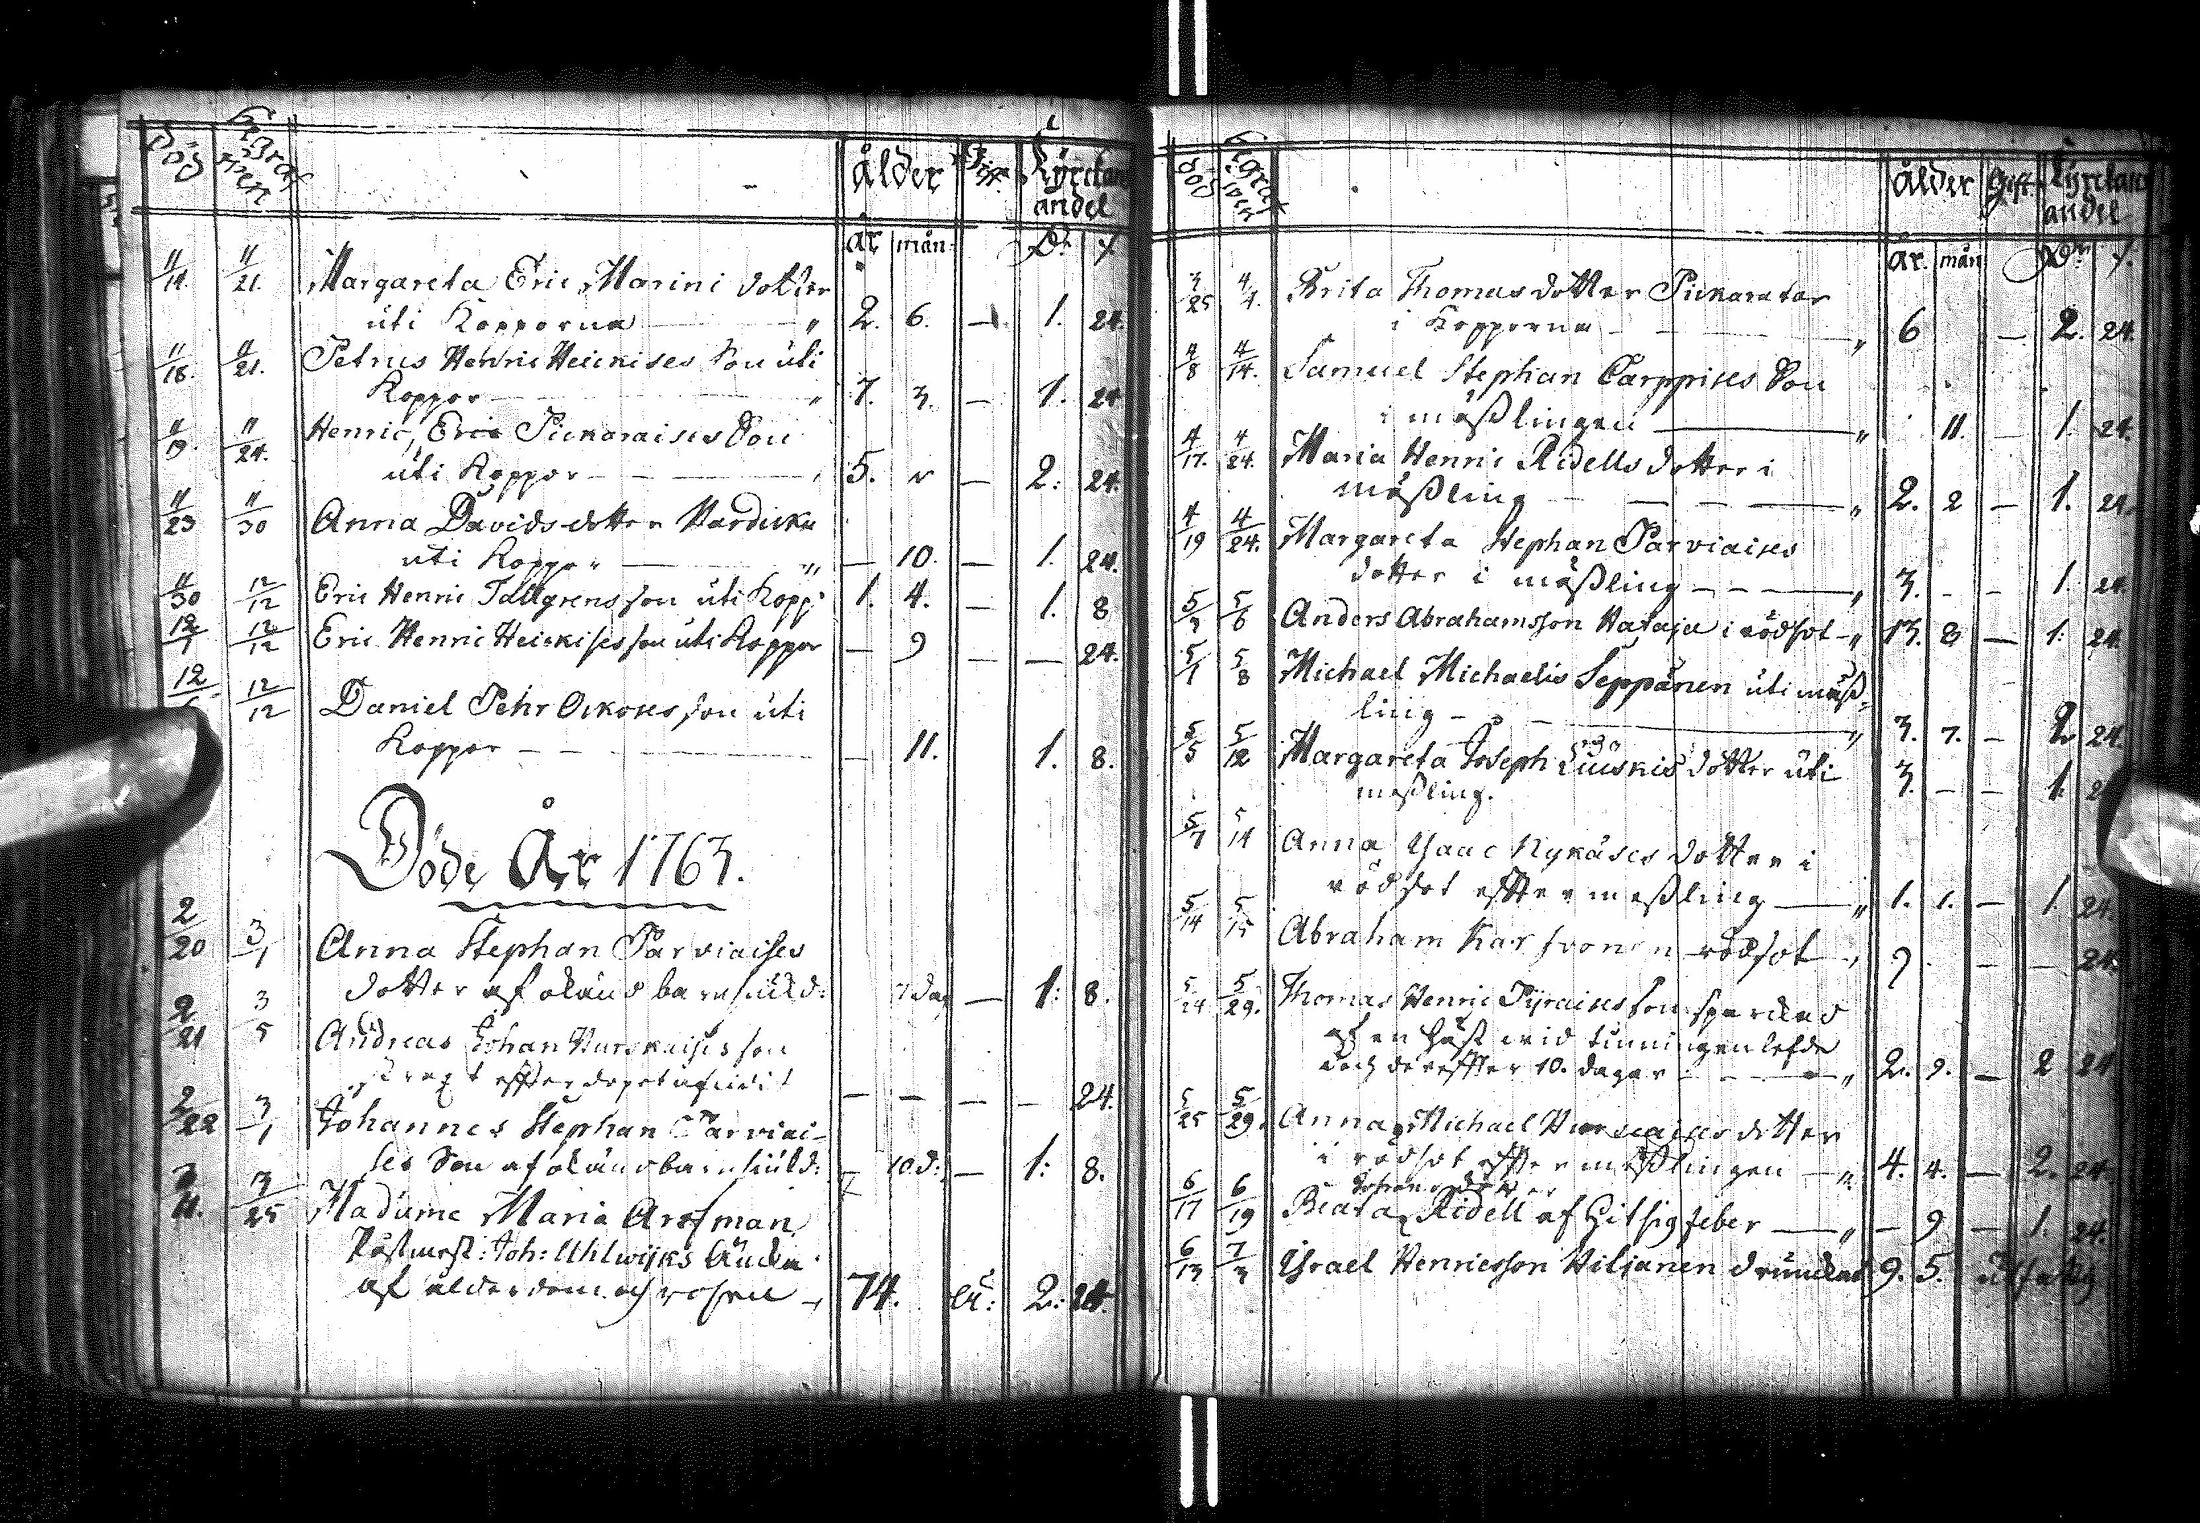 Död Begrafven Ålder Gift Kyrckans andel
år mån D:r
11/14. 11/21. Margareta Eric Marini dotter
uti Kopporna 2. 6. — 1. 24.
11/18. 11/21. Petrus Henric Heickises Son uti
Koppor 7. 3. — 1. 24
11/19. 11/24. Henric, Eric Pickaraises Son
uti Koppor 5. — 2: 24.
11/23 11/30 Anna Davidsdotter
uti Koppor — 10. — 1. 24.
11/30 12/12 Eric Henric Tallgrens son uti Kopp: 1. 4. — 1. 8
12/1 12/12 Eric Henric Heickises son uti Koppor — 9 — — 24.
12/ 12/12 Daniel Pehr Oikoses son uti
Koppor — 11. 1. 8.
Döde År 1763.
2/20 3/1 Anna Stephan Parviaises
dotter af okänd barnsiukd: 7 dag — 1: 8.
2/21 3/5 Andreas Johan son
strext effter döpet 24.
2/22 3/1 Johannes Stephan Parviai-
ses Son af okänd barnsiukd: — 10 d: — 1: 8.
3/11. 3/25 Madame Maria Arosman
Postmest: Joh: Uhlwijks Äncka
af ålderdom och rosen 74. 2: 24.
Död Begrafven Ålder Gift Kyrckans andel
År. mån D:r
3/25 4/4. Brita Thomasdotter Pickaratar
i Kopporna 6 — 2. 24.
4/8 4/14. Samuel Stephan Carppises Son
i mäßlingen 11. — 1. 24.
4/17. 4/24. Maria Henric Ridells dotter i
mäßling 2. 2 — 1. 24.
4/19 4/24. Margareta Stephan Parviaises
dotter i mäßling 3. 1. 24.
5/3 5/8 Anders Abrahamsson Hataja i rödsot 13. 8 — 1: 24.
5/1 5/8 Michael Michaelis Seppänen uti mäß-
ling 3. 7. — 24.
5/5 5/12 Margareta Joseph dotter uti
meßling. 3. — — 1.
5/7 5/14 Anna Ysaac Nykäses dotter i
rödsot effter meßling 1. 1. — 1. 24.
5/14 5/15 Abraham Karhvonen rödsot 9 — — 24.
5/24 5/29. Thomas Henric son sparckad
af en häst wid tunningen lefde
doch dereffter 10. dagar 2. 9. — 2 24
5/25 5/29. Anna Michael dotter
i rödsot effter mäßlingen 4. 4. — 2. 24.
Johans dotter
6/17 6/19 Beata Ridell af Hitsig feber — 9 — 1. 24.
6/13 7/3 Israel Henricsson Hiltanen drunknad 9. 5. utfattig